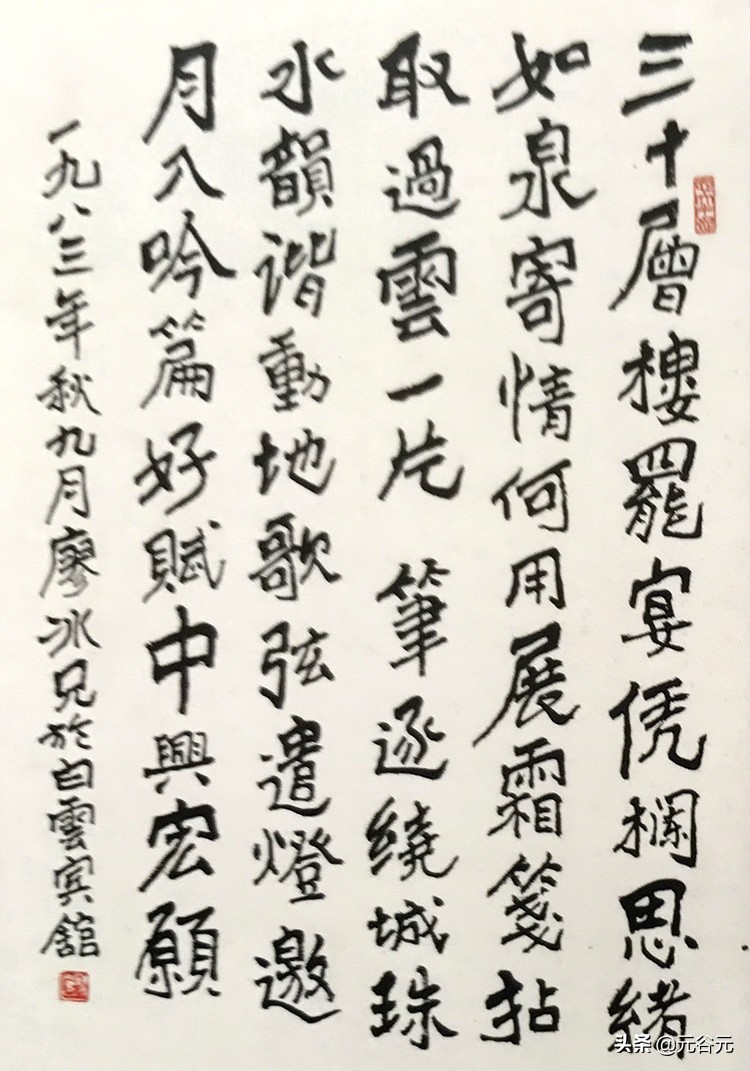 三十層樓罷宴凭欄思緒
如泉寄情何用展霜箋拈
取過雲一片 筆逐繞城珠
水韻谐動地歌弦遣燈邀
月入吟篇好賦中興宏願
一九八三年秋九月廖冰兄於白雲宾館
头条 @元谷元